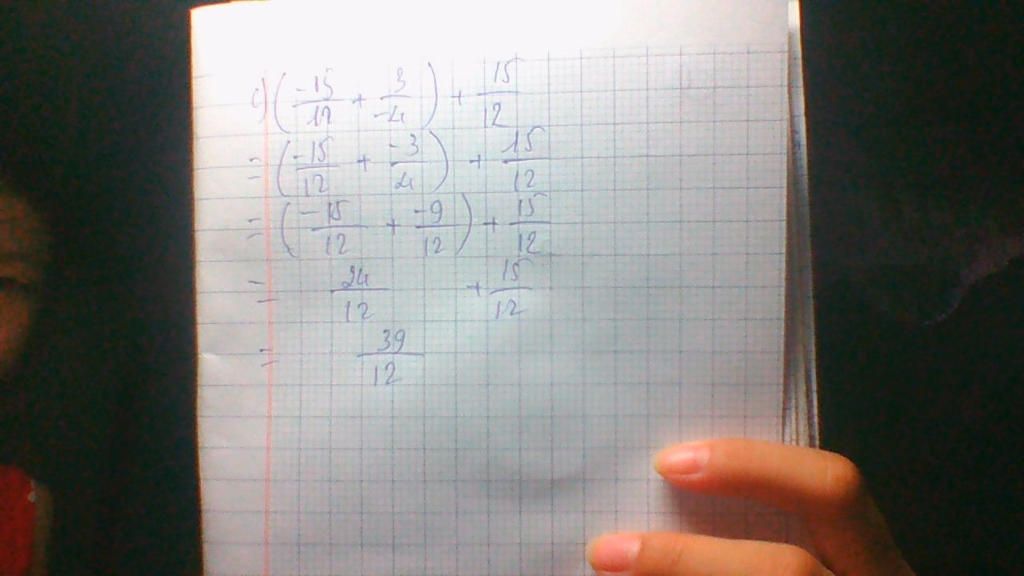 c) (-15/12 + 3/-4) + 15/12
= (-15/12 + -3/4) + 15/12
= (-15/12 + -9/12) + 15/12
= 24/12 + 15/12
= 39/12